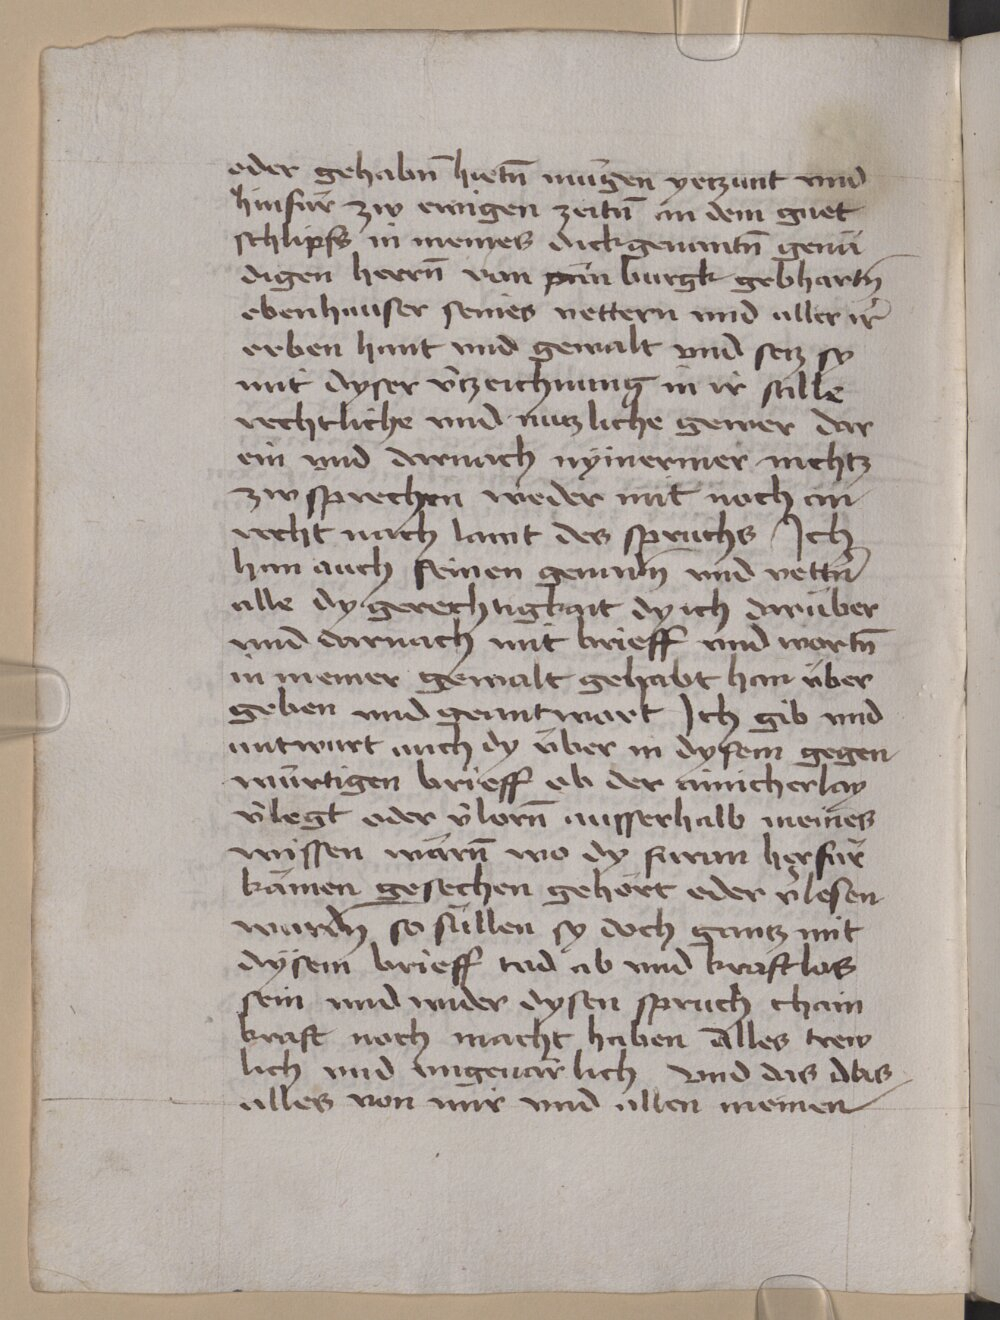 oder gehabñ hietñ mügen yetzunt vnd
hinfür zw ewigen zeitñ an dem guet
schlipfs in meines dickgenantñ genä
digen herrñ von burgk gebhartñ
ebenhauser seines vettern vnd aller ir̃
erben hant vnd gewalt vnd setz sy
mit dyser v̈tzeichnung in ir stille
rechtliche vnd nutzliche gewer dar
ein vnd darnach nÿmermer nichtz
zw sprechen weder mit noch an
recht nach lawt des spruchs Ich
han auch seinen genadñ vnd vettñ
alle dy gerechtigkait dy ich darüber
vnd darnach mit brieff vnd wortñ
in meiner gewalt gehabt han über
geben vnd geantwart Ich gib vnd
antwurt auch dy über in dysem gegen
würtigen brieff ob der ainicherlay
v̈legt oder v̈lorñ ausserhalb meines
wissen wärñ wo dy furan herfür
kämen gesechen gehört oder v̈lesen
wurdñ so süllen sy doch gantz mit
dÿsem brieff tad ab vnd kraftlos
sein vnd wider dysen spruch chain
kraft noch macht haben Alles trew
lich vnd vngeuärlich Vnd das das
alles von mir vnd allen meinen